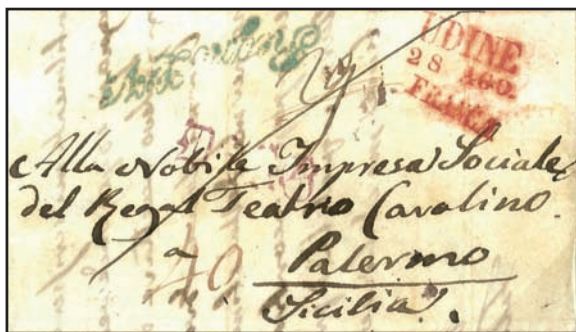 UDINE
28 AGO.
FRANCA
Alla Nobile Impresa Sociale
del Regal Teatro Carolino.
a
40 Palermo
Sicilia.